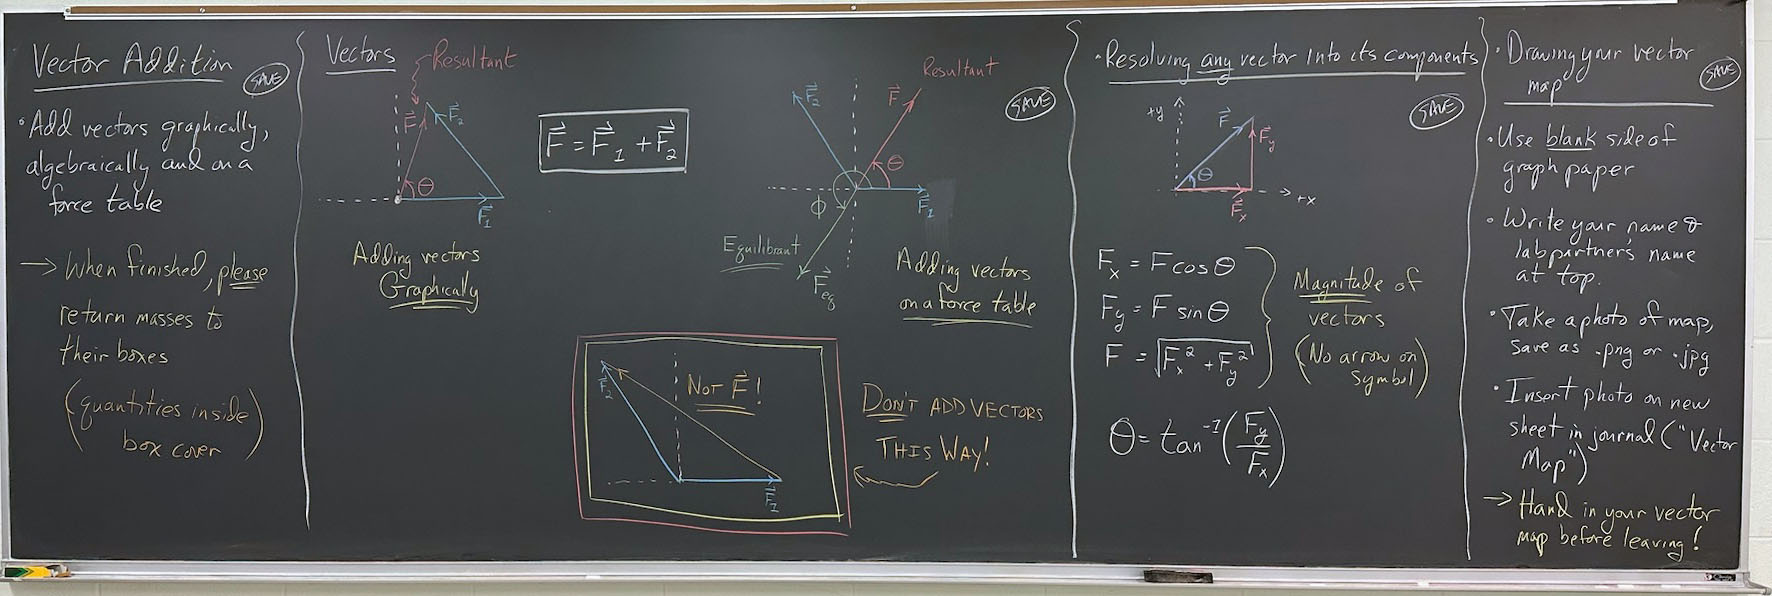 Vector Addition
SAVE
• Add vectors graphically,
algebraically and on a
force table
→ When finished, please
return masses to
their boxes
(quantities inside
box cover)
Vectors
Resultant
F⃗
F⃗₂
θ
F⃗₁
Adding vectors
Graphically
F⃗ = F⃗₁ + F⃗₂
Resultant
SAVE
F⃗₂
F⃗
θ
F⃗₁
ϕ
Equilibrant
F⃗eq
Adding vectors
on a force table
F⃗₂
NOT F⃗!
F⃗₁
DON'T ADD VECTORS
THIS WAY!
• Resolving any vector into its components
SAVE
+y
F⃗
F⃗y
θ
+x
F⃗x
Fx = F cos θ
Fy = F sin θ
F = √(Fx² + Fy²)
Magnitude of
vectors
(No arrow on
symbol)
θ = tan⁻¹(Fy/Fx)
• Drawing your vector
map
SAVE
• Use blank side of
graph paper
• Write your name &
lab partner's name
at top.
• Take a photo of map,
save as .png or .jpg
• Insert photo on new
sheet in journal ("Vector
Map")
→ Hand in your vector
map before leaving!